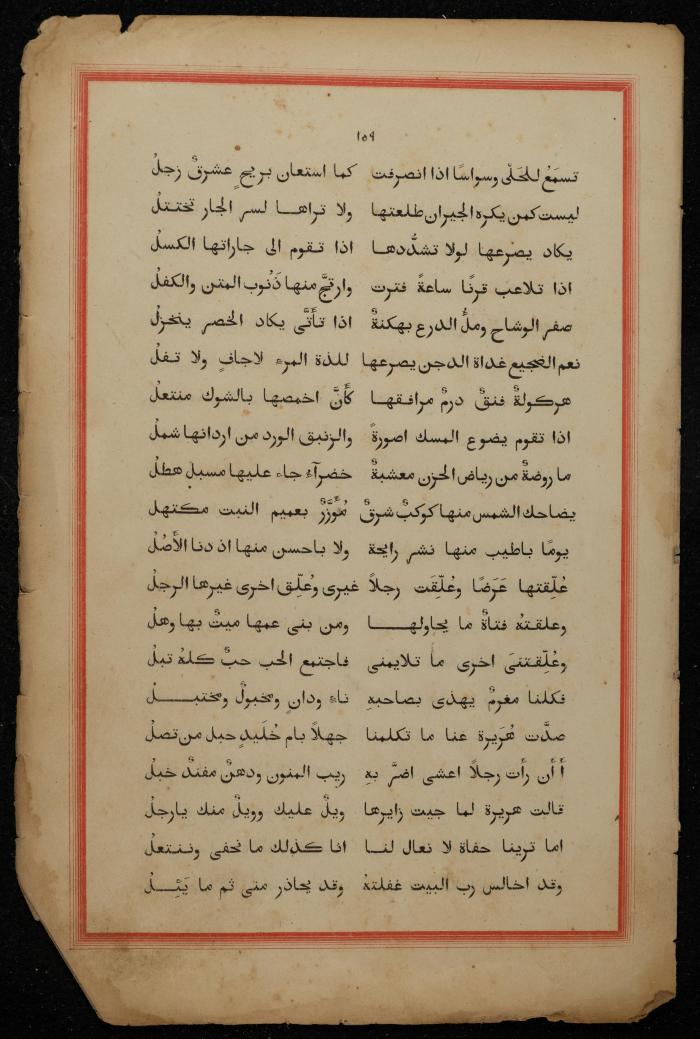 ١٥٩
تسمَعُ للحَلْى وسواسًا اذا انصرفت كما استعان بريحٍ عشرقٌ زجلُ
ليست كمن يكره الجيران طلعتها ولا تراها لسر الجار تختتلُ
يكاد يصرعها لولا تشدُّدها اذا تقوم الى جاراتها الكسلُ
اذا تلاعب قرنًا ساعةً فترت وارتجَّ منها ذَنُوب المتن والكفلُ
صفر الوشاح وملُّ الدرع بهكنةٌ اذا تأَتَّى يكاد الخصر ينخزلُ
نعم الضجيع غداة الدجن يصرعها للذة المرء لاجافٍ ولا تفلُ
هركولةٌ فنقٌ درمٌ مرافقها كأَنَّ اخمصها بالشوك منتعلُ
اذا تقوم يضوع المسك اصورةً والزنبق الورد من اردانها شملُ
ما روضةٌ من رياض الحزن معشبةٌ خضرآءُ جاء عليها مسبل هطلُ
يضاحك الشمس منها كوكبٌ شرقٌ مُؤَزَّرٌ بعميم النبت مكتهلُ
يومًا باطيب منها نشر رايحة ولا باحسن منها اذ دنا الأُصُلُ
عُلِّقتها عَرَضًا وعُلِّقَت رجلاً غيرى وعُلِّق اخرى غيرها الرجلُ
وعلقتهُ فتاةٌ ما يحاولها ومن بنى عمها ميتٌ بها وهلُ
وعُلِّقتنىَ اخرى ما تلايمنى فاجتمع الحب حبٌ كلهُ تبلُ
فكلنا مغرمٌ يهذى بصاحبهِ ناءٍ ودانٍ ومخبولٌ ومختبلُ
صدَّت هُرَيرة عنا ما تكلمنا جهلاً بام خُلَيدٍ حبل من تصلُ
أ أَن رأَت رجلاً اعشى اضرَّ بهِ ريب المنون ودهرٌ مفندٌ خبلُ
قالت هريرة لما جيت زايرها ويلٌ عليك وويلٌ منك يارجلُ
اما ترينا حفاة لا نعال لنا انا كذلك ما نحفى وننتعلُ
وقد اخالس رب البيت غفلتهُ وقد يحاذر منى ثم ما يَئِلُ